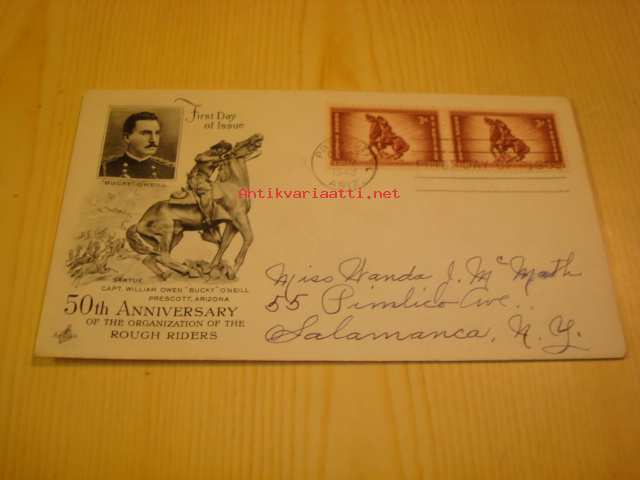 First Day
of Issue
"BUCKY" O'NEILL
1948
3¢
3¢
FIRST DAY OF ISSUE
Antikvariaatti.net
STATUE
CAPT. WILLIAM OWEN "BUCKY" O'NEILL
PRESCOTT, ARIZONA
50th ANNIVERSARY
OF THE ORGANIZATION OF THE
ROUGH RIDERS
Miss Wanda J. McMath
55 Pimlico Ave.
Salamanca, N. Y.